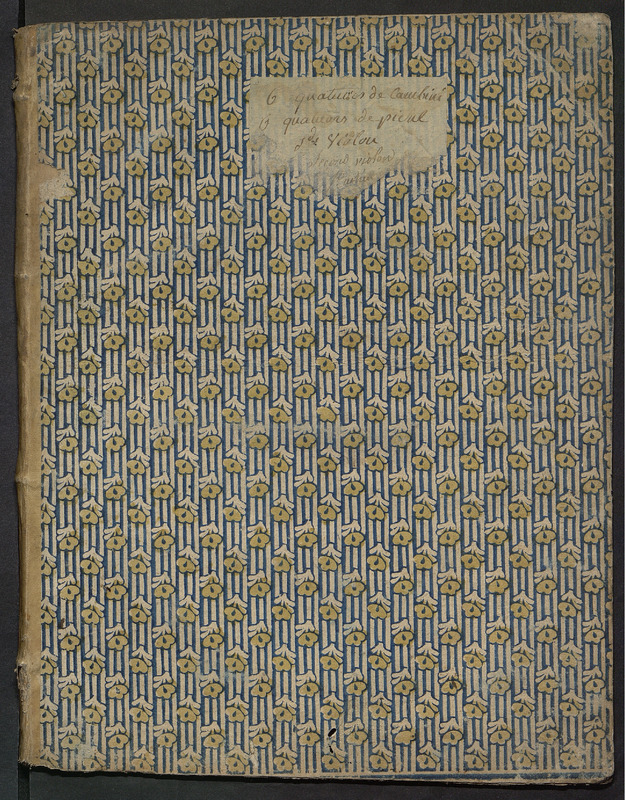 6 quatuors de Cambini
13 quatuors de pieltl
1er Violon
second violon